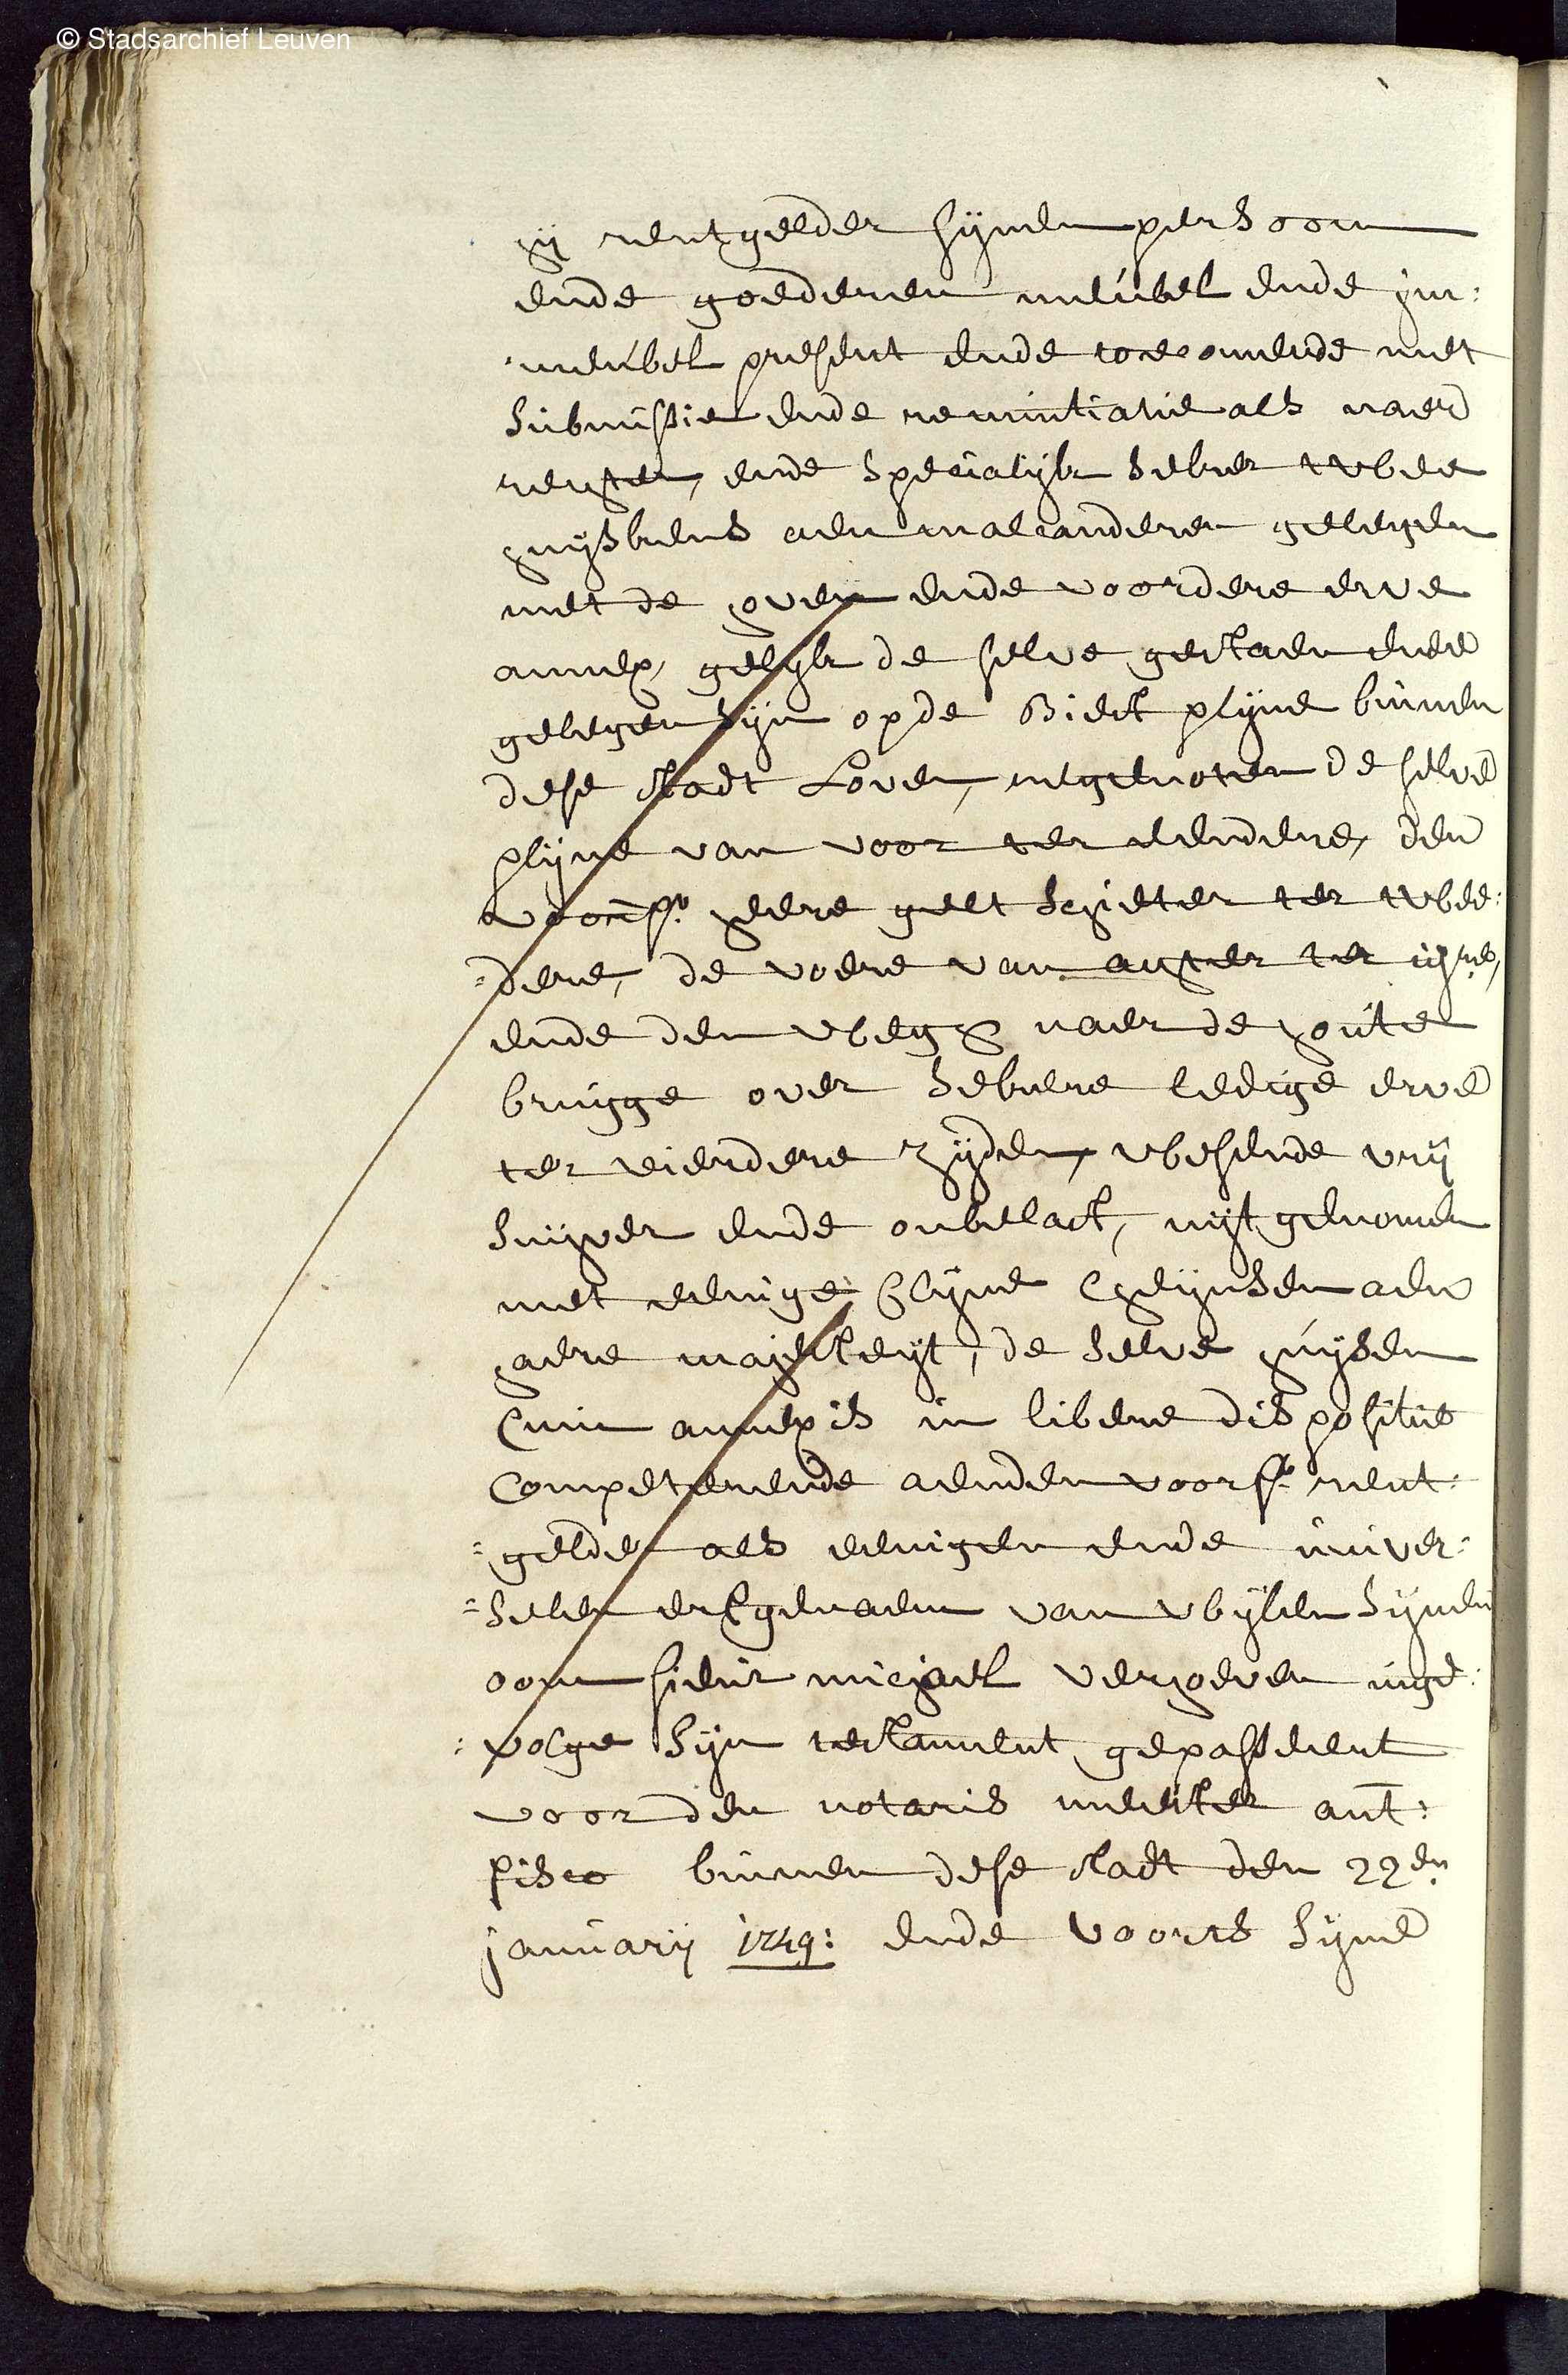 © Stadsarchief Leuven
hij rentgelder sijnen persoon
ende goederen meubel ende im:
:meubel present ende toecomende met
submissie ende renuntiatie als naer
rechten, ende specialijk seker twee
huyskens aen malcanderen gelegen
met de hoven ende voordere erve
annex, gelijk de selve gestaen ende
gelegen sijn op de Biest pleyne binnen
dese stadt Loven, regenoten de selve
pleyne van voor ter eendere, den
voors. heere geelt schieter ter twee:
:dere, de voere van achter ter iijre,
ende den wegh naer de houte
brugge over sekere ledige erve
ter vierdere zijden, wesende vrij
suyver ende onbelast, uytgenomen
met eenige cleyne cheynsen aen
haere majesteyt, de selve huysen
cum annexis in libere dispositie
competerende aen den voors. rent:
:gelder als eenigen ende univer:
:selen erfgenaem van wijlen sijnen
oom sieur michael verhoeven inge:
:volge sijn testament gepasseert
voor den notaris meester ant:
pisco binnen dese stadt den 22en
januarij 1749: ende voorts sijne